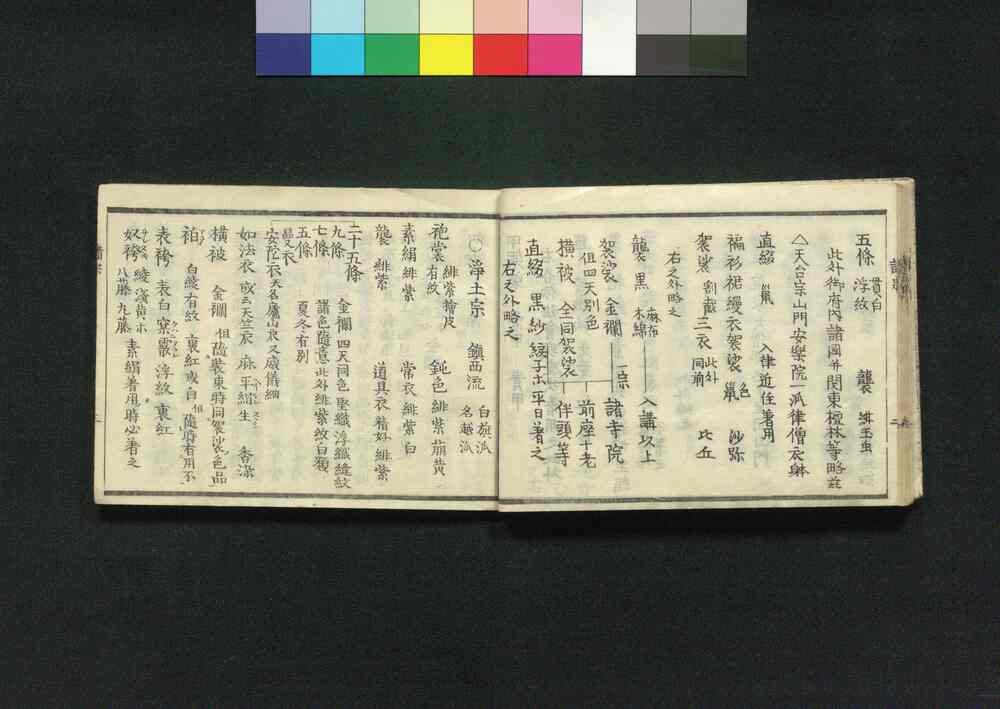 五條 浮紋 貫白 襲 緋玉虫
此外御府内諸國并関東檀林等略茲
△天台宗山門安樂院一派律僧衣躰
直綴 入律近住著用
褊衫裙縵衣袈裟 色 沙弥
袈裟 割截三衣 此外同前 比丘
右之外略之
襲 黒 麻布 木綿 入講以上
袈裟 金襴 一宗 諸寺院
但四天別色 前座十老
横被 全同袈裟 伴頭等
直綴 黒紗綾子 平日著之
右之外略之
○浄土宗 鎮西流 白旗派 名越派
袍裳 有紋 緋紫檜皮 鈍色 緋紫萠黄
素絹 緋紫 常衣 緋紫白
襲 緋紫 道具衣 着好緋紫
二十五條
九條 金襴 四天同色 竪織浮織縫紋
七條 諸色随意此外緋紫紋白類
五條 夏冬有別
安陀衣 天名廬山衣又威儀細
如法衣 或云天竺衣 麻 平絹生 香染
横被 金襴 但随裝束時同袈裟色品
袙 白綾有紋 裏紅或白 但随時有用不
表袴 表白窠霰浮紋裏紅
奴袴 綾浅黄 八藤 九藤 素絹著用時必著之